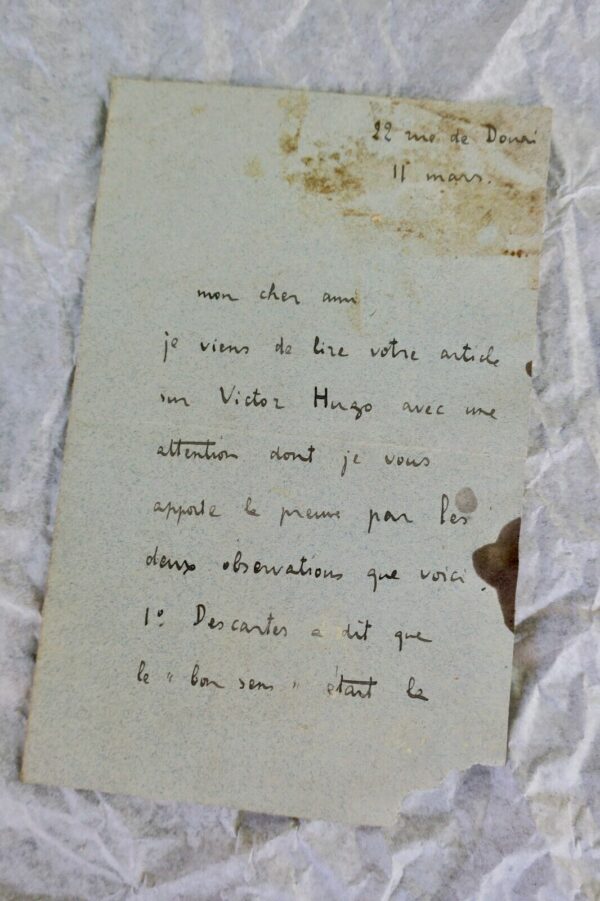 22 rue de Douai
11 mars.
mon cher ami,
je viens de lire votre article
sur Victor Hugo avec une
attention dont je vous
apporte la preuve par les
deux observations que voici :
1º. Descartes a dit que
le " bon sens " était la